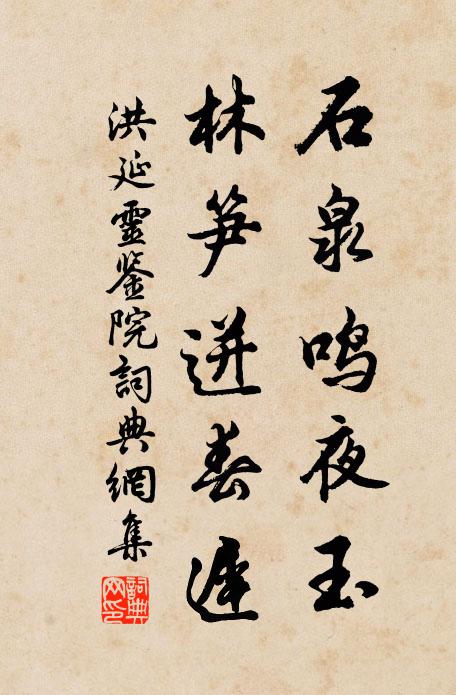 石泉鸣夜玉
林笋迸春遲
洪延靈鉴院詞典網集
詞典网印